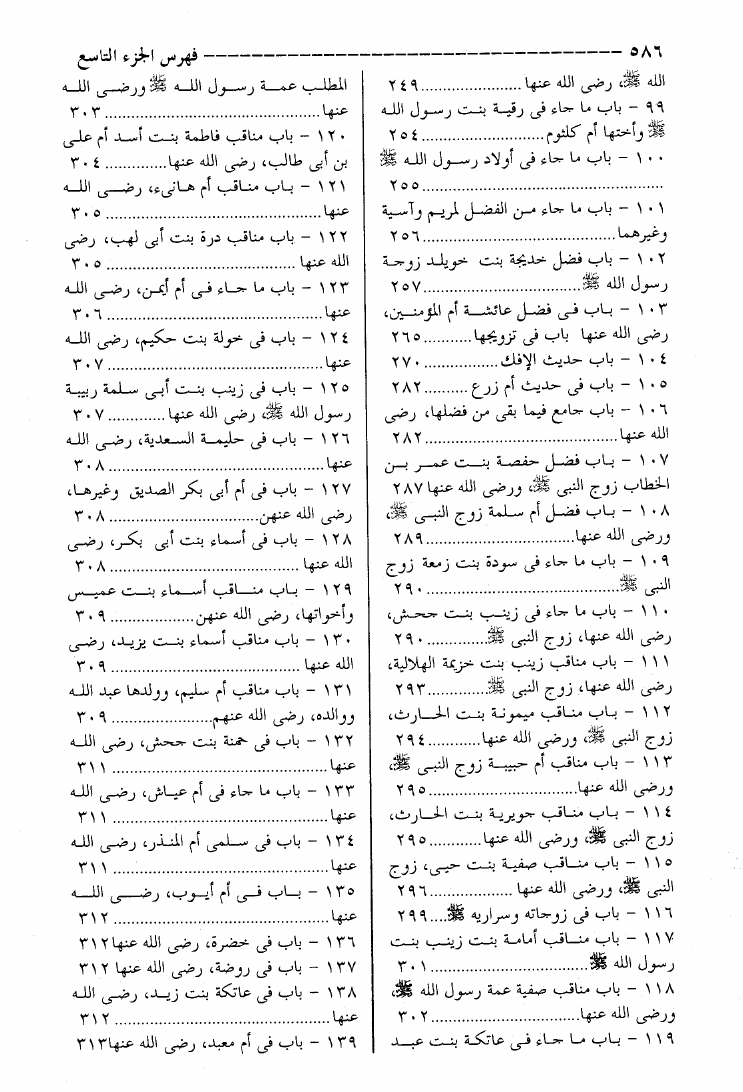 ٥٨٦ ــــــــــــــــــــــــــــــ فهرس الجزء التاسع
الله ﷺ، رضى الله عنها......................٢٤٩
٩٩ – باب ما جاء فى رقية بنت رسول الله
ﷺ وأختها أم كلثوم............................٢٥٤
١٠٠ – باب ما جاء فى أولاد رسول الله ﷺ
......................................................٢٥٥
١٠١ – باب ما جاء من الفضل لمريم وآسية
وغيرهما...........................................٢٥٦
١٠٢ – باب فضل خديجة بنت خويلد زوجة
رسول الله ﷺ...................................٢٥٧
١٠٣ – باب فى فضل عائشة أم المؤمنين،
رضى الله عنها باب فى تزويجها...........٢٦٥
١٠٤ – باب حديث الإفك.................٢٧٠
١٠٥ – باب فى حديث أم زرع..........٢٨٢
١٠٦ – باب جامع فيما بقى من فضلها، رضى
الله عنها...........................................٢٨٢
١٠٧ – باب فضل حفصة بنت عمر بن
الخطاب زوج النبى ﷺ، ورضى الله عنها ٢٨٧
١٠٨ – باب فضل أم سلمة زوج النبى ﷺ،
ورضى الله عنها.................................٢٨٩
١٠٩ – باب ما جاء فى سودة بنت زمعة زوج
النبى ﷺ...........................................٢٩٠
١١٠ – باب ما جاء فى زينب بنت جحش،
رضى الله عنها، زوج النبى ﷺ.............٢٩٠
١١١ – باب مناقب زينب بنت خزيمة الهلالية،
رضى الله عنها، زوج النبى ﷺ.............٢٩٣
١١٢ – باب مناقب ميمونة بنت الحارث،
زوج النبى ﷺ، ورضى الله عنها............٢٩٤
١١٣ – باب مناقب أم حبيبة زوج النبى ﷺ،
ورضى الله عنها.................................٢٩٥
١١٤ – باب مناقب جويرية بنت الحارث،
زوج النبى ﷺ، ورضى الله عنها............٢٩٥
١١٥ – باب مناقب صفية بنت حيى، زوج
النبى ﷺ، ورضى الله عنها ..................٢٩٦
١١٦ – باب فى زوجاته وسراريه ﷺ....٢٩٩
١١٧ – باب مناقب أمامة بنت زينب بنت
رسول الله ﷺ...................................٣٠١
١١٨ – باب مناقب صفية عمة رسول الله ﷺ،
ورضى الله عنها.................................٣٠٢
١١٩ – باب ما جاء فى عاتكة بنت عبد
المطلب عمة رسول الله ﷺ ورضى الله
عنها................................................٣٠٣
١٢٠ – باب مناقب فاطمة بنت أسد أم على
بن أبى طالب، رضى الله عنها.............٣٠٤
١٢١ – باب مناقب أم هانىء، رضى الله
عنها................................................٣٠٥
١٢٢ – باب مناقب درة بنت أبى لهب، رضى
الله عنها ..........................................٣٠٥
١٢٣ – باب ما جاء فى أم أيمن، رضى الله
عنها................................................٣٠٦
١٢٤ – باب فى خولة بنت حكيم، رضى الله
عنها................................................٣٠٧
١٢٥ – باب فى زينب بنت أبى سلمة ربيبة
رسول الله ﷺ، رضى الله عنها............٣٠٧
١٢٦ – باب فى حليمة السعدية، رضى الله
عنها................................................٣٠٨
١٢٧ – باب فى أم أبى بكر الصديق وغيرها،
رضى الله عنهن.................................٣٠٨
١٢٨ – باب فى أسماء بنت أبى بكر، رضى
الله عنها ..........................................٣٠٨
١٢٩ – باب مناقب أسماء بنت عميس
وأخواتها، رضى الله عنهن...................٣٠٩
١٣٠ – باب مناقب أسماء بنت يزيد، رضى
الله عنها ..........................................٣٠٩
١٣١ – باب مناقب أم سليم، وولدها عبد الله
ووالده، رضى الله عنهم......................٣٠٩
١٣٢ – باب فى حمنة بنت جحش، رضى الله
عنها................................................٣١١
١٣٣ – باب ما جاء فى أم عياش، رضى الله
عنها................................................٣١١
١٣٤ – باب فى سلمى أم المنذر، رضى الله
عنها................................................٣١١
١٣٥ – باب فى أم أيوب، رضى الله
عنها................................................٣١٢
١٣٦ – باب فى خضرة، رضى الله عنها ٣١٢
١٣٧ – باب فى روضة، رضى الله عنها ٣١٢
١٣٨ – باب فى عاتكة بنت زيد، رضى الله
عنها................................................٣١٢
١٣٩ – باب فى أم معبد، رضى الله عنها ٣١٣